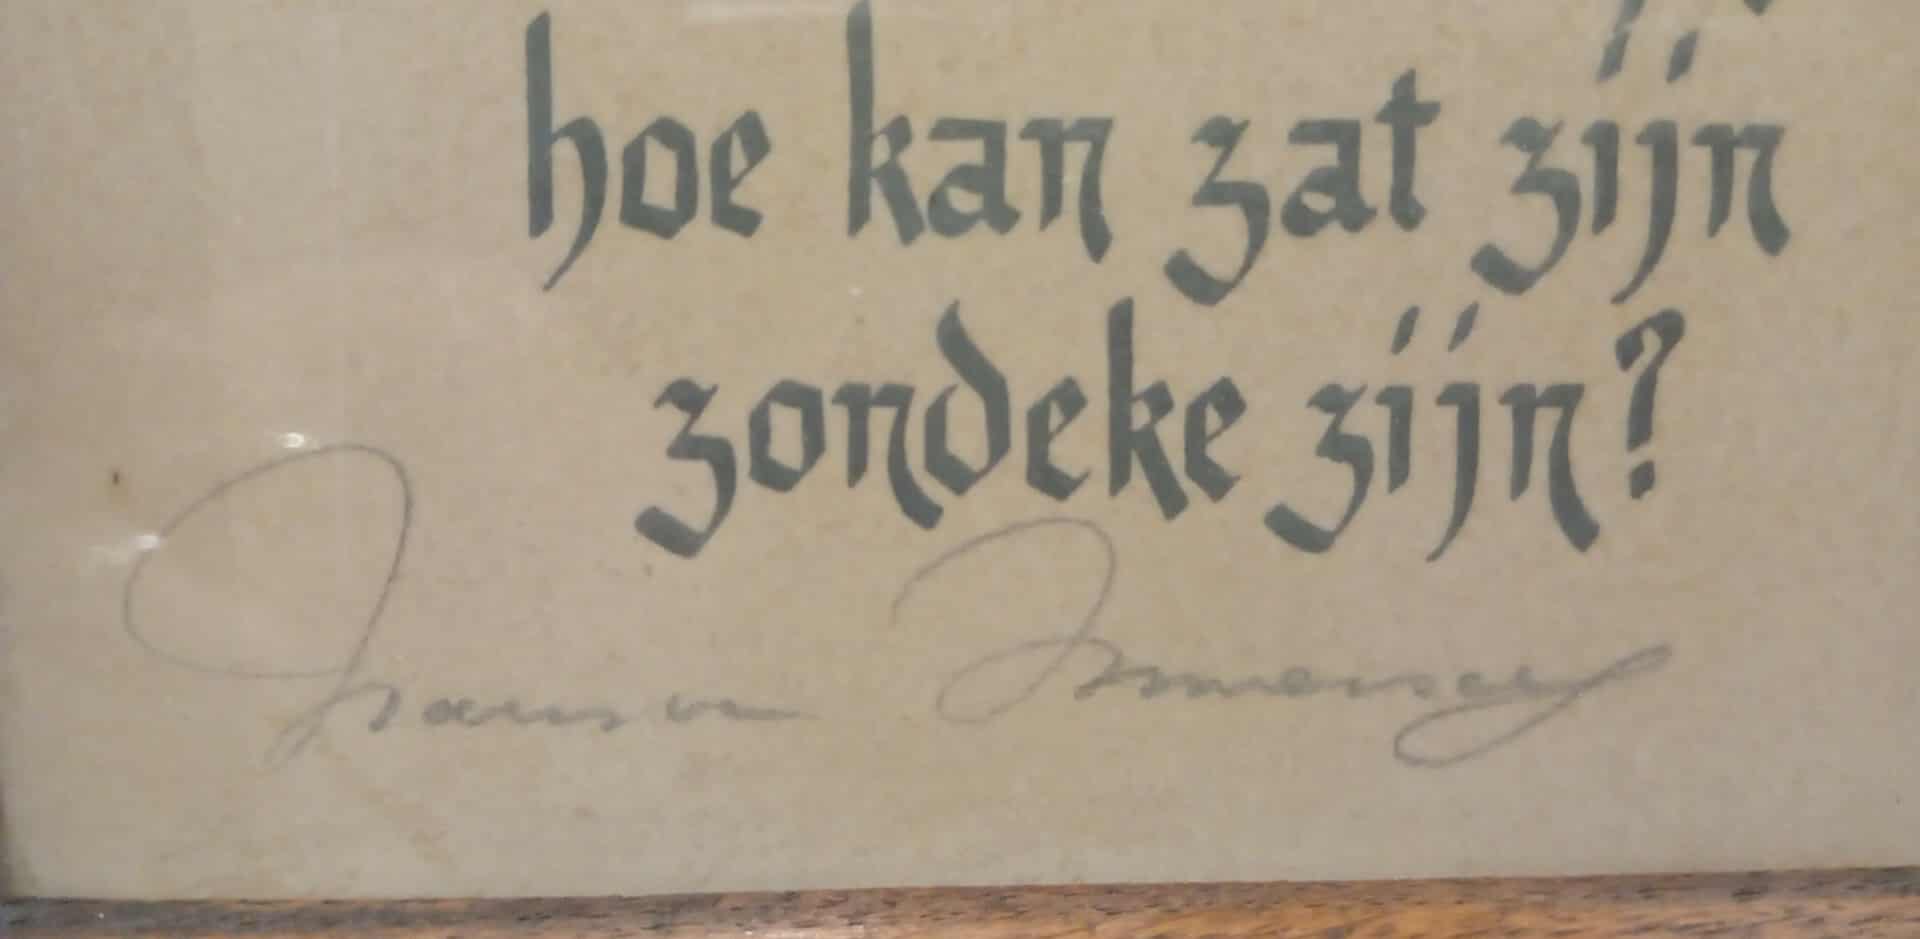 hoe kan zat zijn
zondeke zijn?
Frans van Immerseel